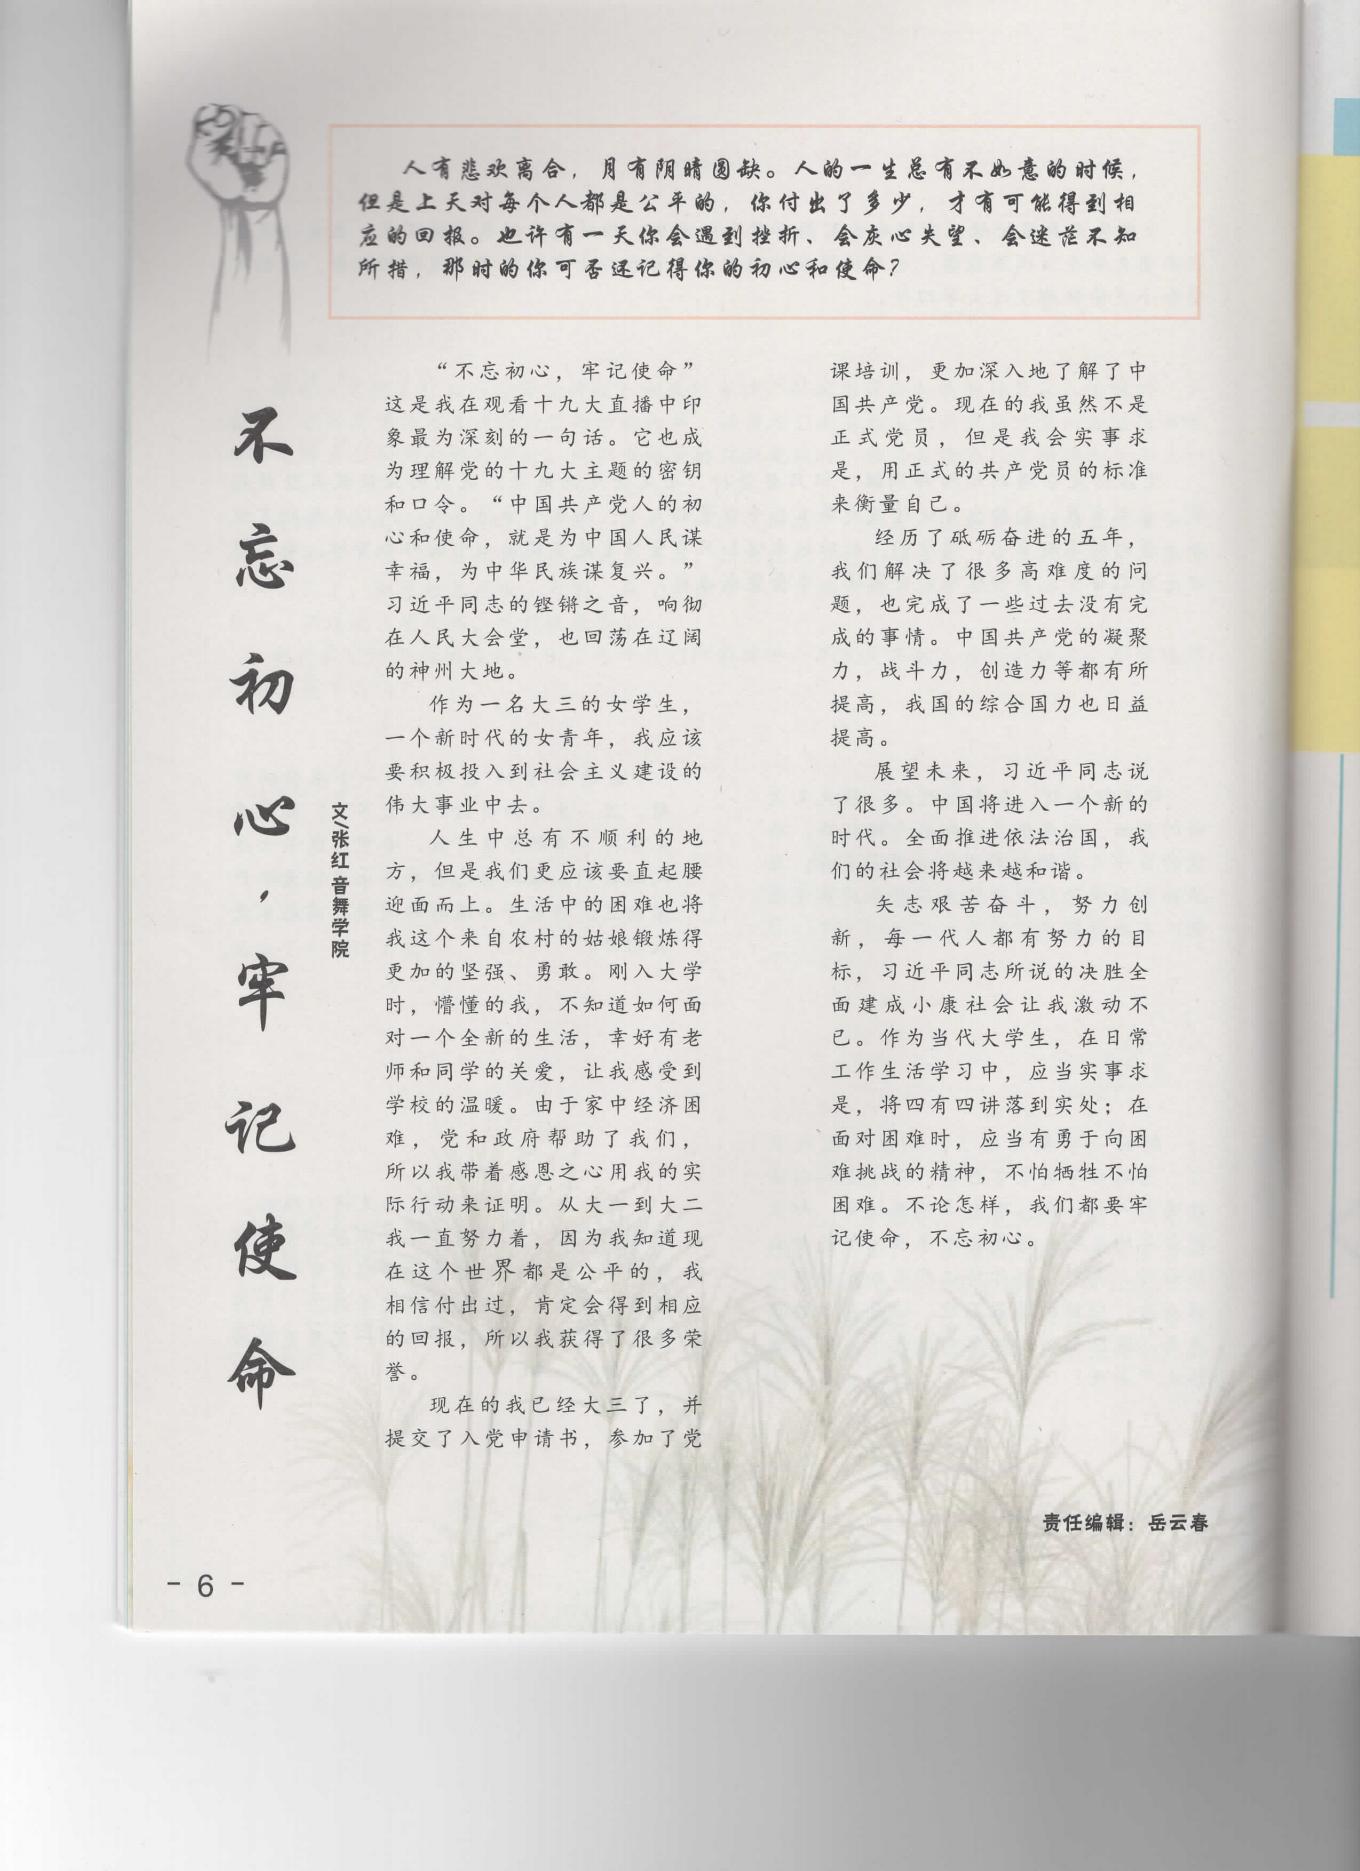 人有悲欢离合，月有阴晴圆缺。人的一生总有不如意的时候，
但是上天对每个人都是公平的，你付出了多少，才有可能得到相
应的回报。也许有一天你会遇到挫折、会灰心失望、会迷茫不知
所措，那时的你可否还记得你的初心和使命？
不忘初心，牢记使命
文/张红 音舞学院
“不忘初心，牢记使命”
这是我在观看十九大直播中印
象最为深刻的一句话。它也成
为理解党的十九大主题的密钥
和口令。“中国共产党人的初
心和使命，就是为中国人民谋
幸福，为中华民族谋复兴。”
习近平同志的铿锵之音，响彻
在人民大会堂，也回荡在辽阔
的神州大地。
作为一名大三的女学生，
一个新时代的女青年，我应该
要积极投入到社会主义建设的
伟大事业中去。
人生中总有不顺利的地
方，但是我们更应该要直起腰
迎面而上。生活中的困难也将
我这个来自农村的姑娘锻炼得
更加的坚强、勇敢。刚入大学
时，懵懂的我，不知道如何面
对一个全新的生活，幸好有老
师和同学的关爱，让我感受到
学校的温暖。由于家中经济困
难，党和政府帮助了我们，
所以我带着感恩之心用我的实
际行动来证明。从大一到大二
我一直努力着，因为我知道现
在这个世界都是公平的，我
相信付出过，肯定会得到相应
的回报，所以我获得了很多荣
誉。
现在的我已经大三了，并
提交了入党申请书，参加了党
课培训，更加深入地了解了中
国共产党。现在的我虽然不是
正式党员，但是我会实事求
是，用正式的共产党员的标准
来衡量自己。
经历了砥砺奋进的五年，
我们解决了很多高难度的问
题，也完成了一些过去没有完
成的事情。中国共产党的凝聚
力，战斗力，创造力等都有所
提高，我国的综合国力也日益
提高。
展望未来，习近平同志说
了很多。中国将进入一个新的
时代。全面推进依法治国，我
们的社会将越来越和谐。
矢志艰苦奋斗，努力创
新，每一代人都有努力的目
标，习近平同志所说的决胜全
面建成小康社会让我激动不
已。作为当代大学生，在日常
工作生活学习中，应当实事求
是，将四有四讲落到实处；在
面对困难时，应当有勇于向困
难挑战的精神，不怕牺牲不怕
困难。不论怎样，我们都要牢
记使命，不忘初心。
责任编辑：岳云春
- 6 -